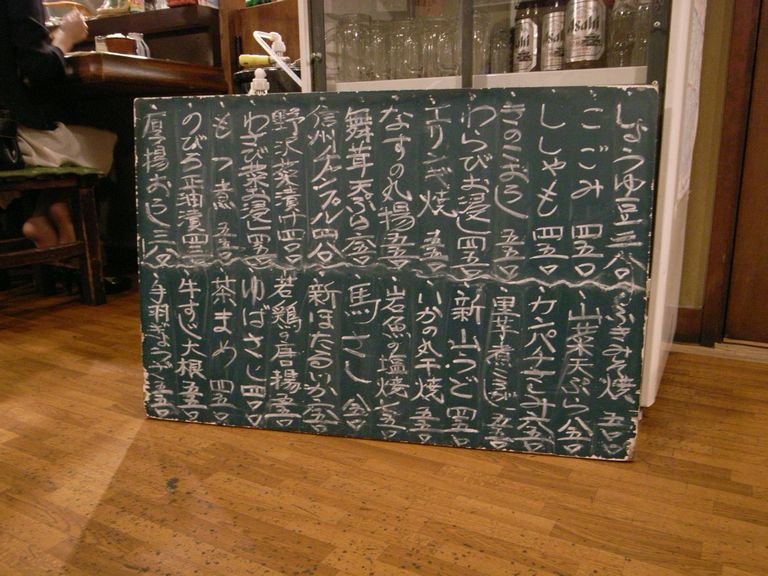 しょうゆ豆 三八〇
こごみ 四五〇
ししゃも 四五〇
きのこおろし 五五〇
わらびお浸し 四五〇
エリンギ焼 五五〇
なすの丸揚 五五〇
舞茸天ぷら 六五〇
信州
野沢菜漬け 四〇〇
わさび菜お浸し 四五〇
もつ煮 五五〇
のびろ正油漬 四五〇
厚揚おろし 三八〇
ふきみそ焼 五五〇
山菜天ぷら 八五〇
カンパチ
新山うど 四五〇
いかの丸干焼 五五〇
岩魚の塩焼 五五〇
馬さし 八五〇
新ほたるいか
若鶏の唐揚 五五〇
ゆばさし 四五〇
茶まめ 四五〇
牛すじ大根 五五〇
手羽ぎょうざ 五五〇
Asahi
Asahi
Asahi